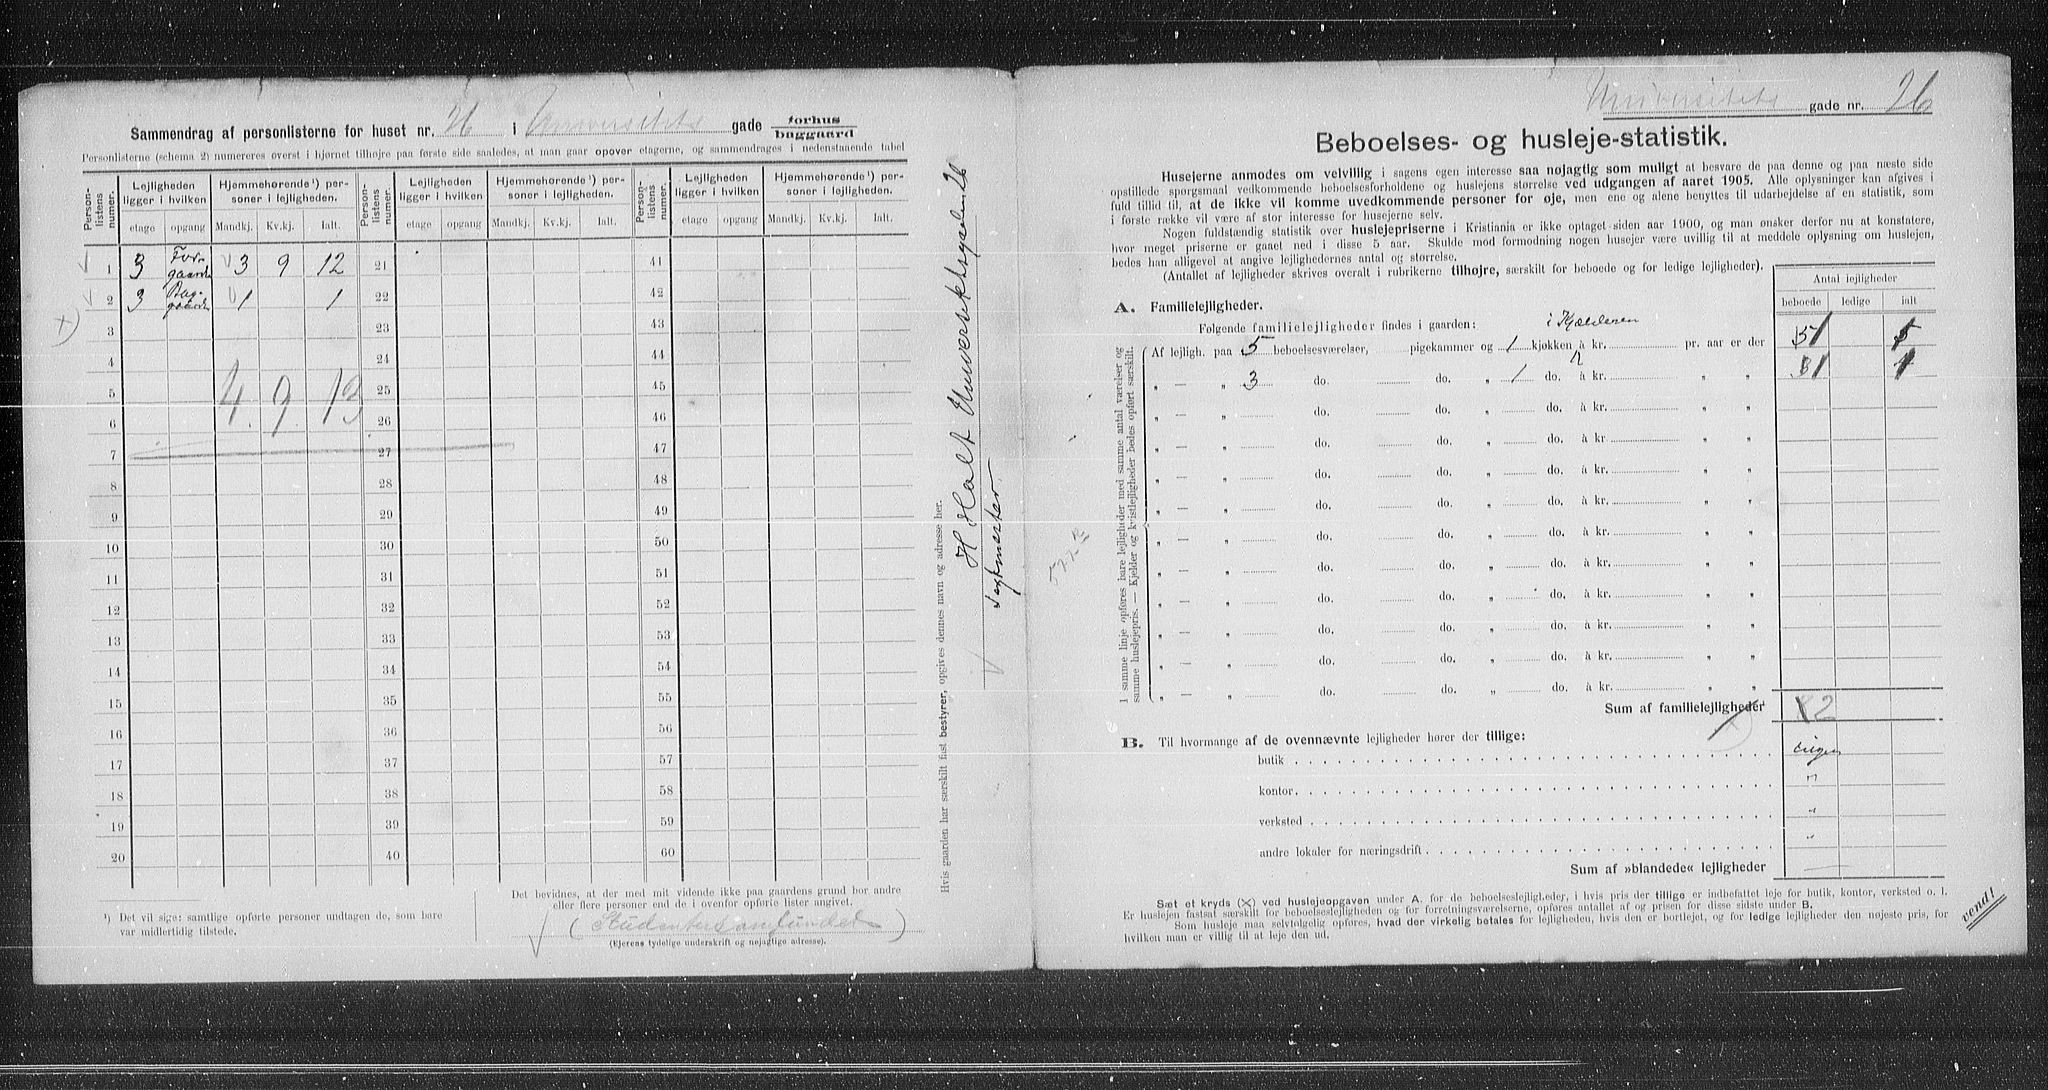 Sammendrag af personlisterne for huset nr. 26 i Universitets gade forhus
baggaard
Personlisterne (schema 2) numereres øverst i hjørnet tilhøjre paa første side saaledes, at man gaar opover etagerne, og sammendrages i nedenstaaende tabel
Person-listens numer. Lejligheden ligger i hvilken Hjemmehørende ¹) personer i lejligheden. Person-listens numer. Lejligheden ligger i hvilken Hjemmehørende ¹) personer i lejligheden. Person-listens numer. Lejligheden ligger i hvilken Hjemmehørende ¹) personer i lejligheden.
etage opgang Mandkj. Kv.kj. Ialt. etage opgang Mandkj. Kv.kj. Ialt. etage opgang Mandkj. Kv.kj. Ialt.
1 3 Forgaarden 3 9 12 21 41
2 3 Baggaarden 1 1 22 42
3 23 43
4 24 44
5 4. 9. 13 25 45
6 26 46
7 27 47
8 28 48
9 29 49
10 30 50
11 31 51
12 32 52
13 33 53
14 34 54
15 35 55
16 36 56
17 37 57
18 38 58
19 39 59
20 40 60
¹) Det vil sige: samtlige opførte personer undtagen de, som bare
var midlertidig tilstede.
Det bevidnes, at der med mit vidende ikke paa gaardens grund bor andre
eller flere personer end de i ovenfor opførte lister angivet.
(Studentersamfundet
(Ejerens tydelige underskrift og nøjagtige adresse).
Hvis gaarden har særskilt fast bestyrer, opgives dennes navn og adresse her.
H Holt Universitetsgaden 26
Universitets gade nr. 26
Beboelses- og husleje-statistik.
Husejerne anmodes om velvillig i sagens egen interesse saa nøjagtig som muligt at besvare de paa denne og paa næste side
opstillede spørgsmaal vedkommende beboelsesforholdene og huslejens størrelse ved udgangen af aaret 1905. Alle oplysninger kan afgives i
fuld tillid til, at de ikke vil komme uvedkommende personer for øje, men ene og alene benyttes til udarbejdelse af en statistik, som
i første række vil være af stor interesse for husejerne selv.
Nogen fuldstændig statistik over huslejepriserne i Kristiania er ikke optaget siden aar 1900, og man ønsker derfor nu at konstatere,
hvor meget priserne er gaaet ned i disse 5 aar. Skulde mod formodning nogen husejer være uvillig til at meddele oplysning om huslejen,
bedes han alligevel at angive lejlighedernes antal og størrelse.
(Antallet af lejligheder skrives overalt i rubrikerne tilhøjre, særskilt for beboede og for ledige lejligheder).
Antal lejligheder
beboede ledige ialt
A. Familielejligheder.
Følgende familielejligheder findes i gaarden: i Kjælderen
Af lejligh. paa 5 beboelsesværelser, pigekammer og 1 kjøkken à kr. pr. aar er der 1
„ — „ 3 do. do. „ 1 do. à kr. „ „ 1 1
„ — „ do. do. „ do. à kr. „ „
„ — „ do. do. „ do. à kr. „ „
„ — „ do. do. „ do. à kr. „ „
„ — „ do. do. „ do. à kr. „ „
„ — „ do. do. „ do. à kr. „ „
„ — „ do. do. „ do. à kr. „ „
„ — „ do. do. „ do. à kr. „ „
„ — „ do. do. „ do. à kr. „ „
„ — „ do. do. „ do. à kr. „ „
„ — „ do. do. „ do. à kr. „ „
I samme linje opføres bare lejligheder med samme antal værelser og
samme huslejepris. — Kjelder og kvistlejligheder bedes opført særskilt.
Sum af familielejligheder 2
B. Til hvormange af de ovennævnte lejligheder hører der tillige:
butik ingen
kontor „
verksted „
andre lokaler for næringsdrift „
Sum af »blandede« lejligheder —
Sæt et kryds (×) ved huslejeopgaven under A. for de beboelseslejligheder, i hvis pris der tillige er indbefattet leje for butik, kontor, verksted o. l.
Er huslejen fastsat særskilt for beboelseslejligheden og for forretningsværelserne, opføres antallet af og prisen for disse sidste under B.
Som husleje maa selvfølgelig opføres, hvad der virkelig betales for lejligheden, hvis den er bortlejet, og for ledige lejligheder den nøjeste pris, for
hvilken man er villig til at leje den ud.
vend!